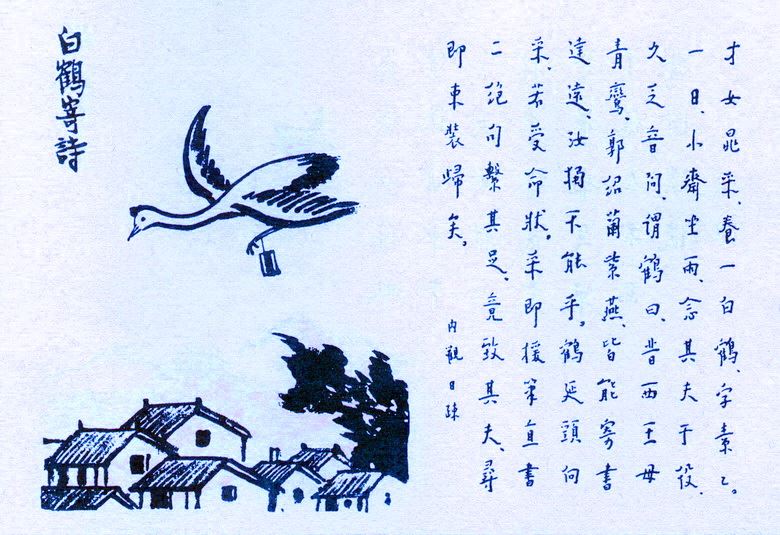 白鶴寄詩
才女晁采、養一白鶴、字素乙。
一日、小齋坐雨、念其夫于役、
久乏音問、謂鶴曰、昔西王母
青鸞、郭紹蘭紫燕、皆能寄書
達遠、汝獨不能乎。鶴延頸向
采、若受命狀。采即援筆直書
二絕句繫其足、竟致其夫、尋
即束裝歸矣。
內觀日疏